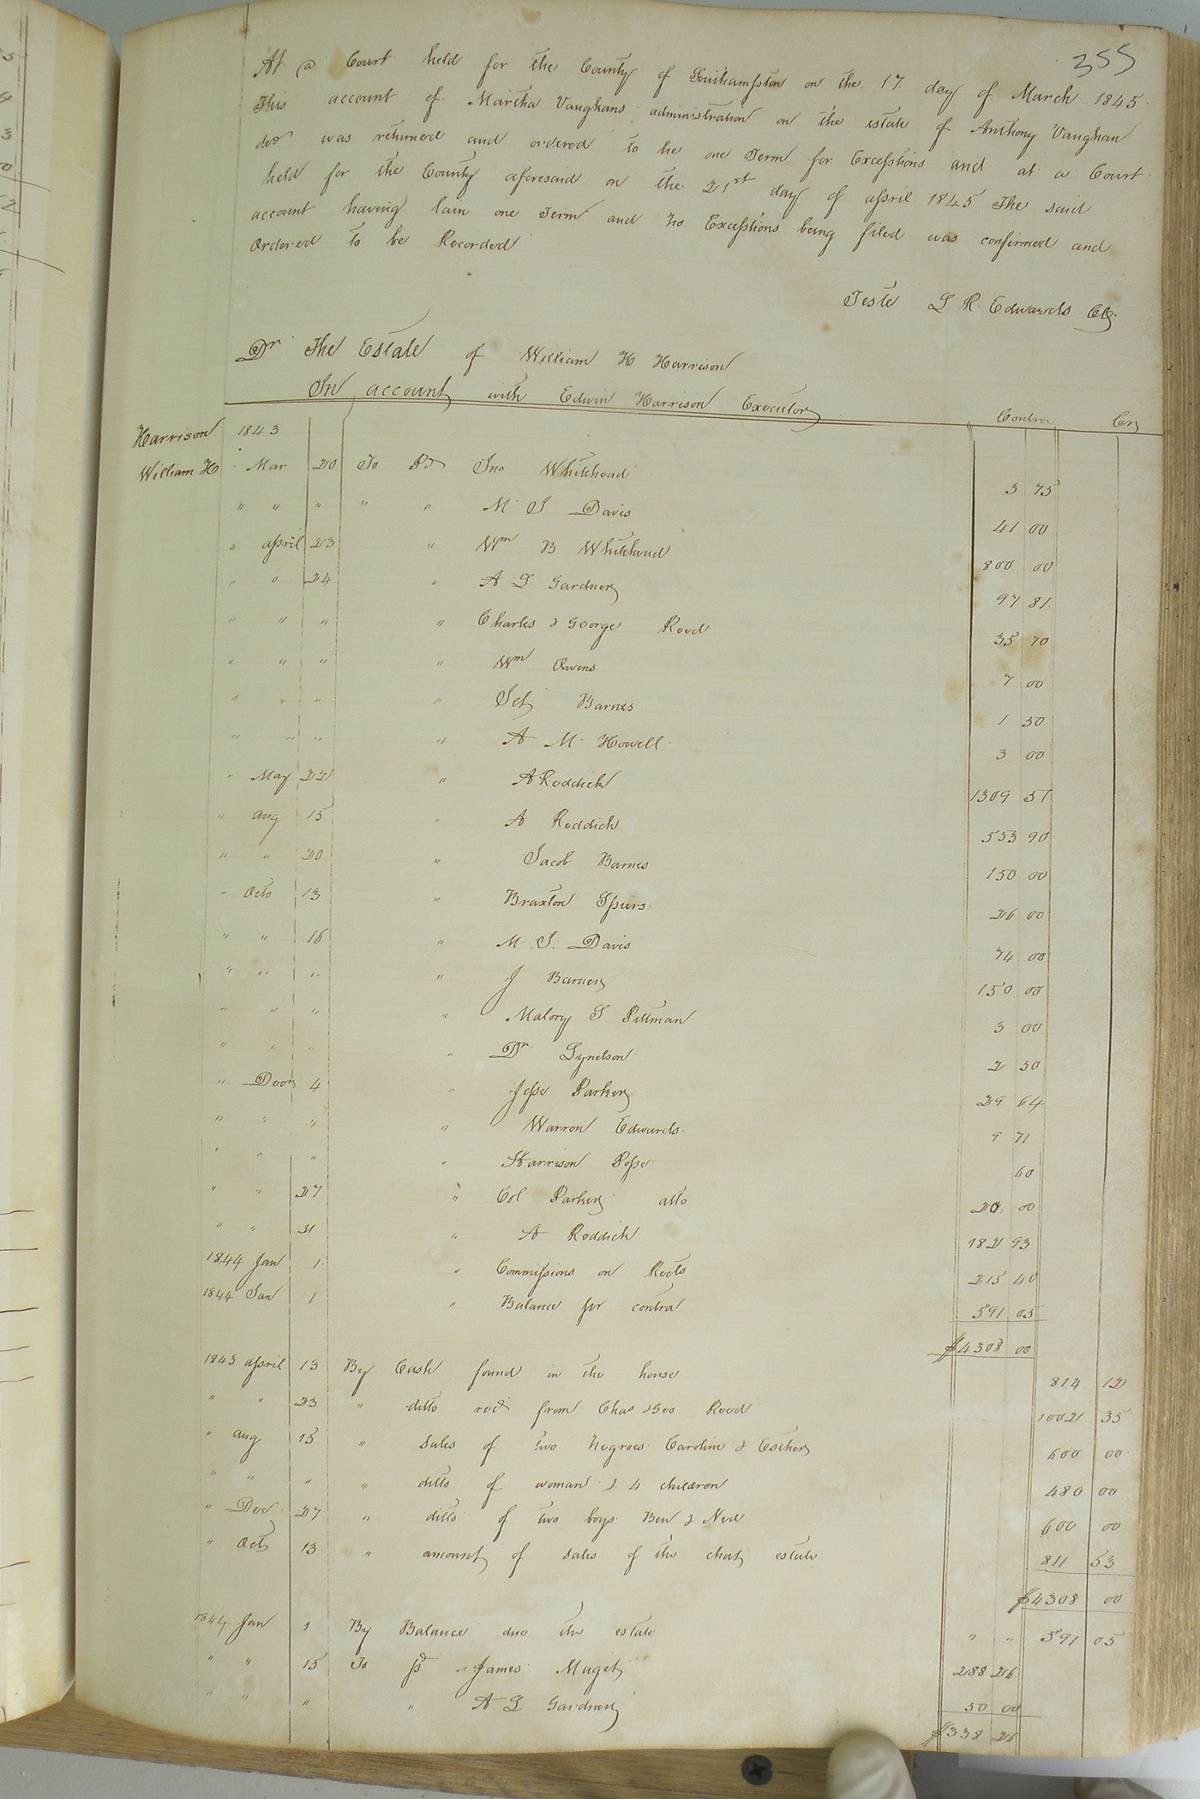 355
At a Court held for the County of Southampton on the 17 day of March 1845
This account of Martha Vaughans administration on the estate of Anthony Vaughan
decd was returned and ordered to lie one Term for Exceptions and at a Court
held for the County aforesaid on the 21st day of april 1845 The said
account having lain one Term and no Exceptions being filed was confirmed and
Ordered to be Recorded
Teste L R Edwards Clk
Dr The Estate of William H Harrison
In account with Edwin Harrison Executor
Contra Cr
Harrison 1843
William H " Mar 20 To Pd Jno Whitehead 3 75
" " " " " M S Davis 41 00
" april 23 " Wm B Whitehead 800 00
" " 24 " A G Gardner 97 81
" " " " Charles & George Reed 35 70
" " " " Wm Owens 7 00
" " " " Barnes 1 50
" " " " A M Howell 3 00
" May 22 " A Reddick 1309 51
" aug 15 " A Reddick 553 90
" " 20 " Jacob Barnes 150 00
" Octo 13 " Braxton Spiers 26 00
" " 16 " M. S. Davis 74 00
" " " " J Barnes 150 00
" " " " Malory S Pittman 3 00
" " " " Dr 2 50
" Decr 4 " Jesse Parker 29 64
" " " " Warren Edwards 9 71
" " " " Harrison Pope 60
" " 27 " Col Parker atto 20 00
" " 31 " A Reddick 182 93
1844 Jan 1 " Commissions on Rects 215 40
1844 Jan 1 " Balance per contra 591 05
$4308 00
1843 april 13 By Cash found in the house 814 12
" " 23 " ditto recd from Chas & Geo Reed 1002 35
" aug 15 " Sales of two Negroes Caroline & Esther 600 00
" " " " ditto of woman & 4 children 480 00
" Dec 27 " ditto of two boys Ben & Ned 600 00
" Octo 13 " amount of sales of the estate 811 53
$4308 00
1844 Jan 1 By Balance due the estate " " 591 05
" " 15 To pd James Maget 288 26
" " " " A G Gardner 50 00
$338 26